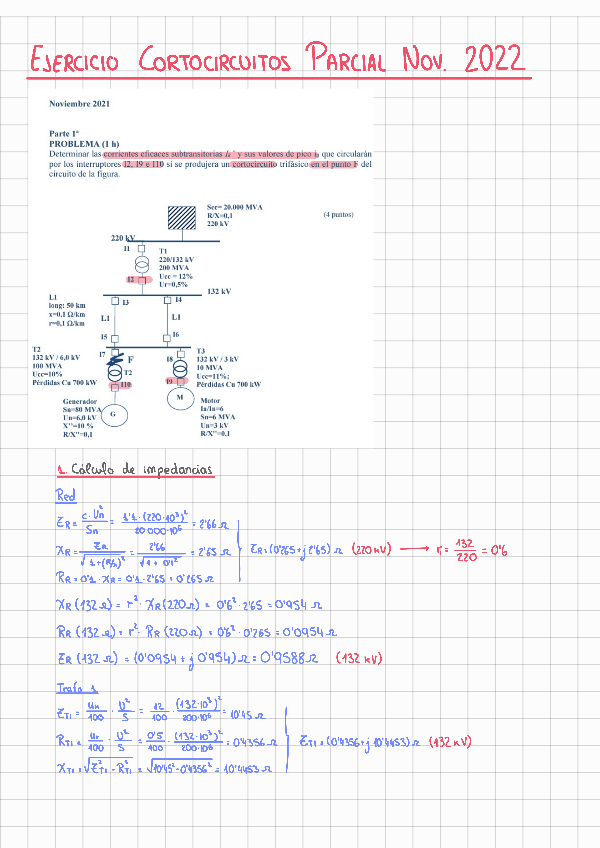 EJERCICIO CORTOCIRCUITOS PARCIAL NOV. 2022
Noviembre 2021
Parte 1ª
PROBLEMA (1 h)
Determinar las corrientes eficaces subtransitorias Iₖ'' y sus valores de pico iₚ que circularán
por los interruptores I2, I9 e I10 si se produjera un cortocircuito trifásico en el punto F del
circuito de la figura.
Scc= 20.000 MVA
R/X=0,1
220 kV
(4 puntos)
220 kV
I1
T1
220/132 kV
200 MVA
Ucc = 12%
Ur=0,5%
I2
132 kV
L1
long: 50 km
x=0,1 Ω/km
r=0,1 Ω/km
I3
I4
L1
L1
I5
I6
T2
132 kV / 6,0 kV
100 MVA
Ucc=10%
Pérdidas Cu 700 kW
I7
F
T2
I10
I8
I9
T3
132 kV / 3 kV
10 MVA
Ucc=11%;
Pérdidas Cu 700 kW
Generador
Sn=80 MVA
Un=6,0 kV
X''=10 %
R/X''=0,1
G
M
Motor
Ia/In=6
Sn=6 MVA
Un=3 kV
R/X''=0,1
1. Cálculo de impedancias
Red
ZR = c·Un²/Sn = 1'1·(220·10³)²/20000·10⁶ = 2'66 Ω
XR = ZR/√1+(R/X)² = 2'66/√1+0'1² = 2'65 Ω
ZR = (0'265+j2'65) Ω (220 kV) → r = 132/220 = 0'6
RR = 0'1·XR = 0'1·2'65 = 0'265 Ω
XR (132 Ω) = r²·XR(220 Ω) = 0'6²·2'65 = 0'954 Ω
RR (132 Ω) = r²·RR (220 Ω) = 0'6²·0'265 = 0'0954 Ω
ZR (132 Ω) = (0'0954 + j 0'954) Ω = 0'9588 Ω (132 kV)
Trafo 1
ZT1 = Uk/100 · U²/S = 12/100 · (132·10³)²/200·10⁶ = 10'45 Ω
RT1 = Ur/100 · U²/S = 0'5/100 · (132·10³)²/200·10⁶ = 0'4356 Ω
ZT1 = (0'4356+j10'4453) Ω (132 kV)
XT1 = √ZT1² - RT1² = √10'45² - 0'4356² = 10'4453 Ω